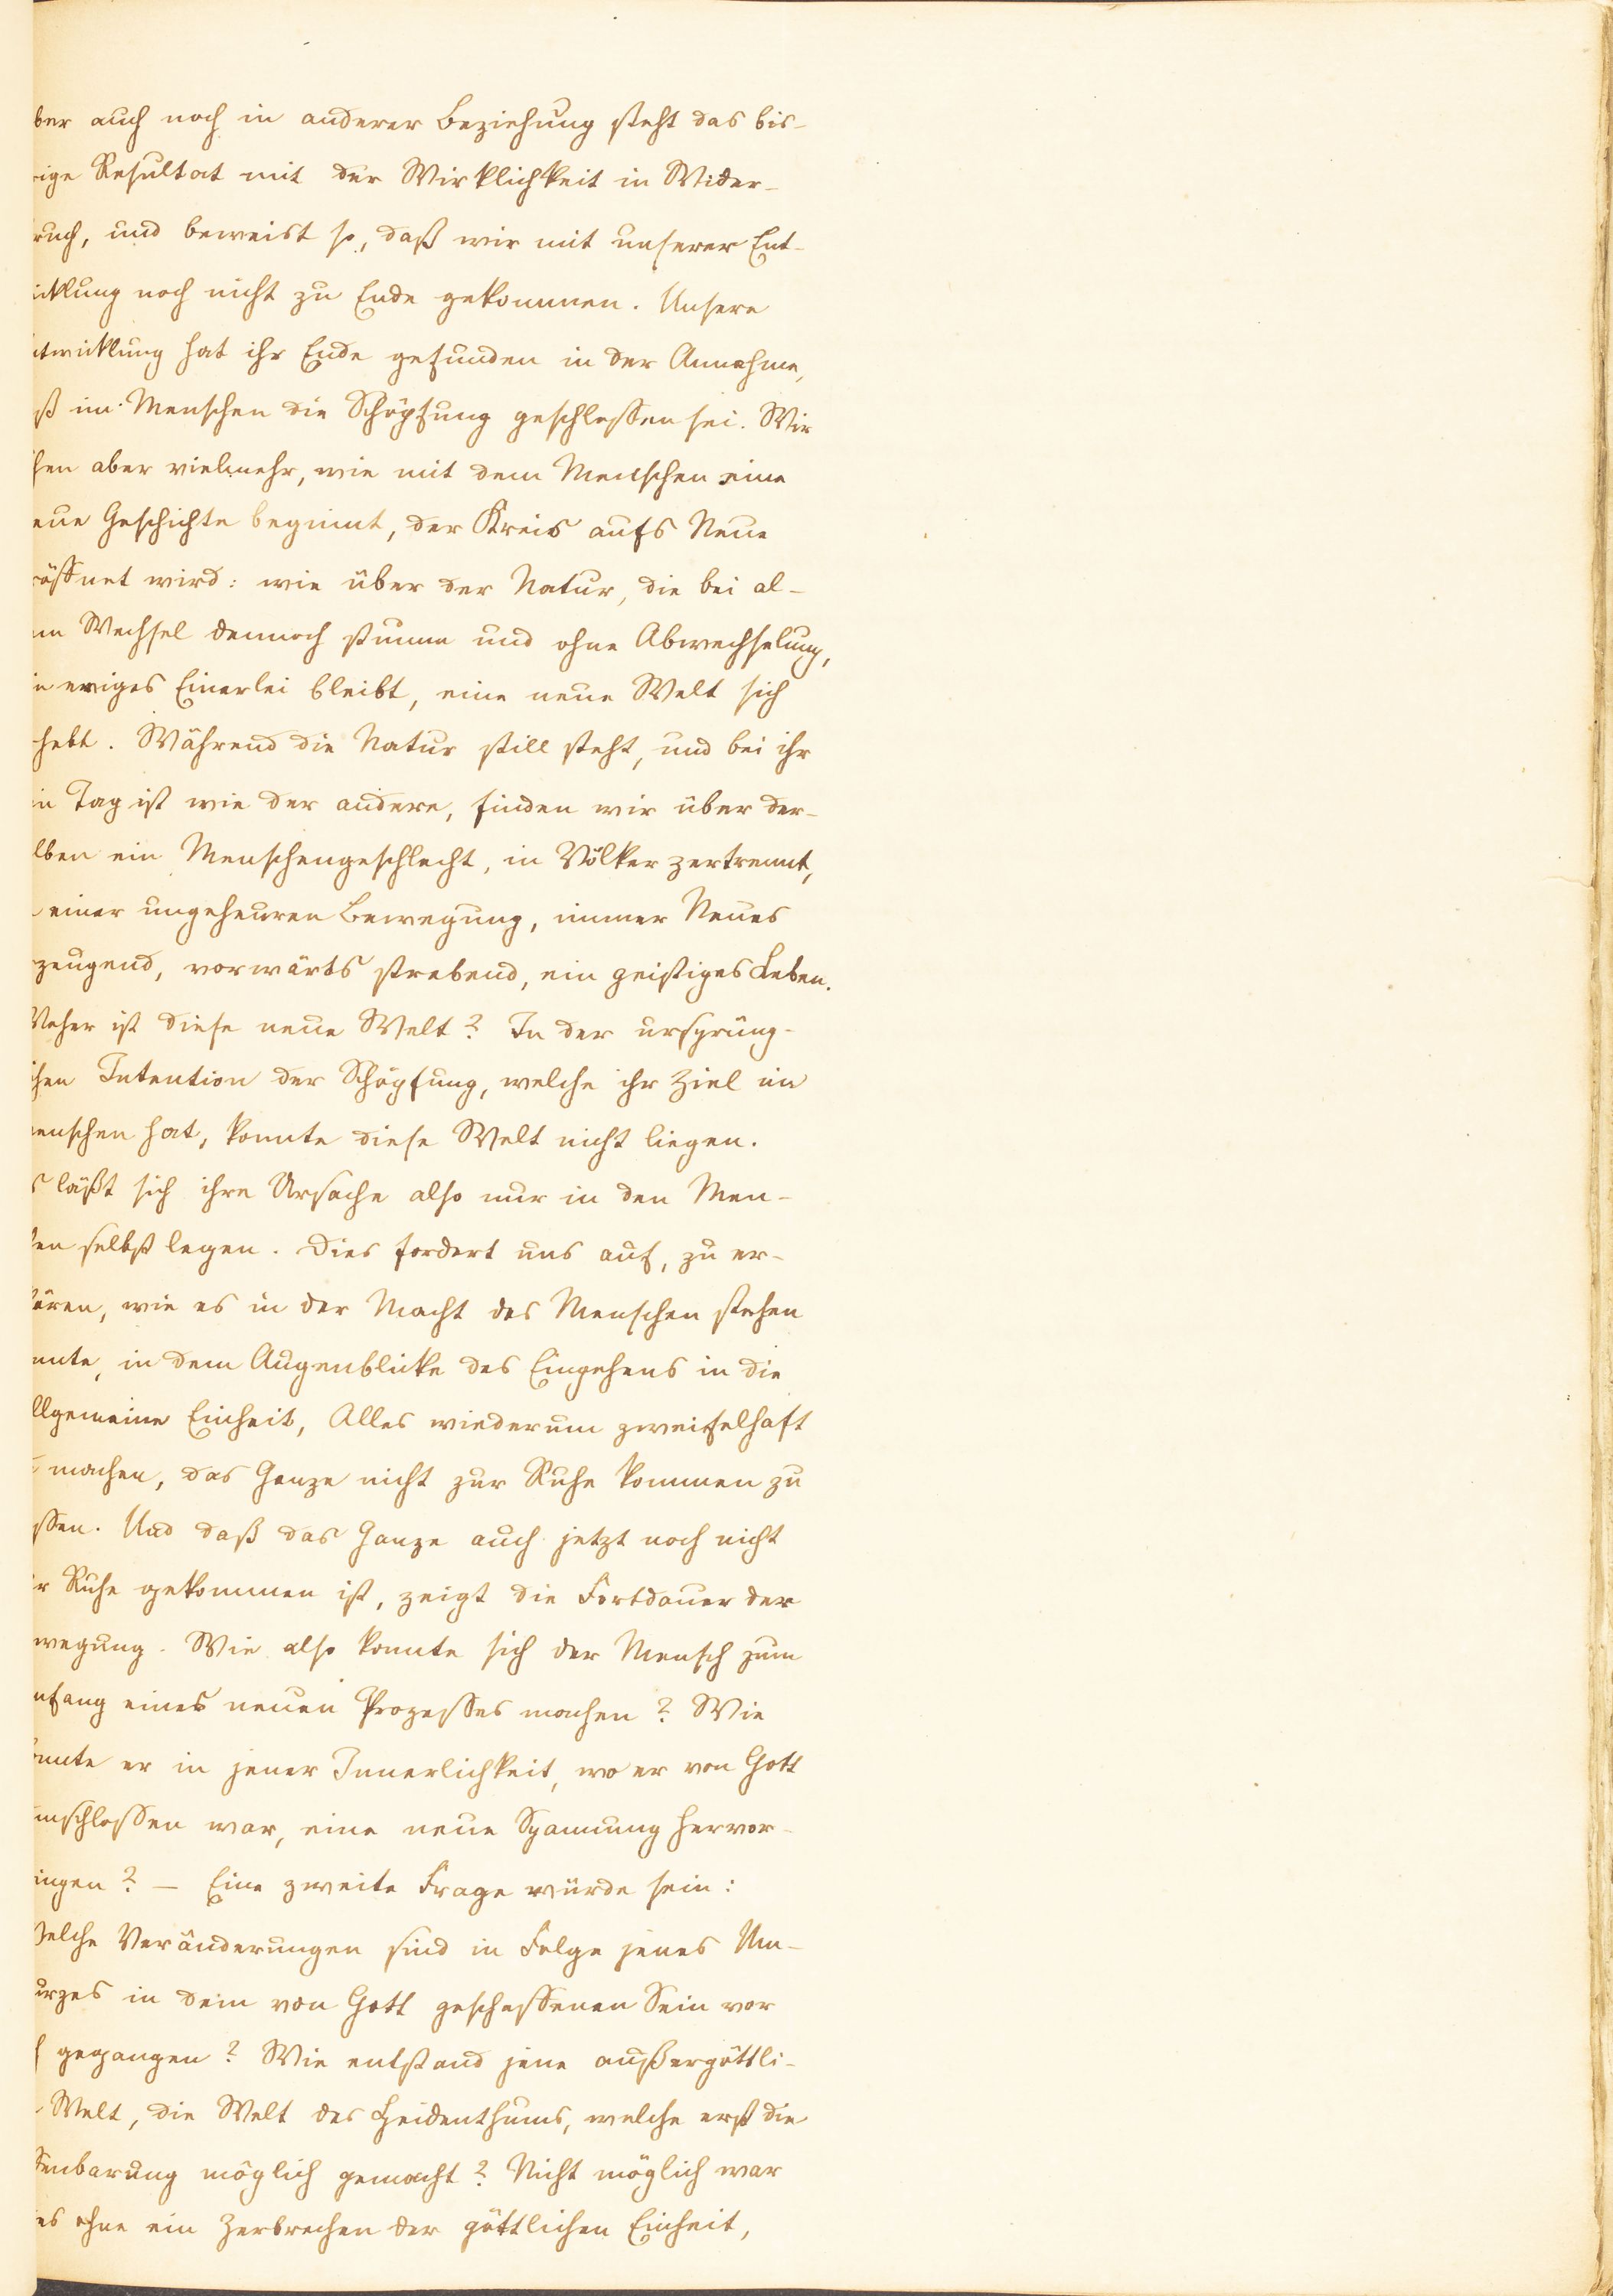 ber auch noch in anderer Beziehung steht das bis-
rige Resultat mit der Wirklichkeit in Wider-
ruch, und beweist so, daß wir mit unserer Ent-
icklung noch nicht zu Ende gekommen. Unsere
ntwicklung hat ihr Ende gefunden in der Annahme,
ß im Menschen die Schöpfung geschlossen sei. Wir
hen aber vielmehr, wie mit dem Menschen eine
eue Geschichte beginnt, der Kreis aufs Neue
röffnet wird: wie über der Natur, die bei al-
em Wechsel dennoch stumm und ohne Abwechselung,
in ewiges Einerlei bleibt, eine neue Welt sich
hebt. Während die Natur still steht, und bei ihr
in Tag ist wie der andere, finden wir über der-
lben ein Menschengeschlecht, in Völker zertrennt,
einer ungeheuren Bewegung, immer Neues
zeugend, vorwärts strebend, ein geistiges Leben.
Woher ist diese neue Welt? In der ursprüng-
ichen Intention der Schöpfung, welche ihr Ziel im
enschen hat, konnte diese Welt nicht liegen.
s läßt sich ihre Ursache also nur in den Men-
en selbst legen. Dies fordert uns auf, zu er-
ären, wie es in der Macht des Menschen stehen
nnte, in dem Augenblicke des Eingehens in die
llgemeine Einheit, Alles wiederum zweifelhaft
machen, das Ganze nicht zur Ruhe kommen zu
ssen. Und daß das Ganze auch jetzt noch nicht
r Ruhe gekommen ist, zeigt die Fortdauer der
wegung. Wie also konnte sich der Mensch zum
nfang eines neuen Prozesses machen? Wie
onnte er in jener Innerlichkeit, wo er von Gott
mschlossen war, eine neue Spannung hervor-
ingen? — Eine zweite Frage würde sein:
Welche Veränderungen sind in Folge jenes Um-
urzes in dem von Gott geschaffenen Sein vor
h gegangen? Wie entstand jene außergöttli-
Welt, die Welt des Heidenthums, welche erst die
fenbarung möglich gemacht? Nicht möglich war
es ohne ein Zerbrechen der göttlichen Einheit,